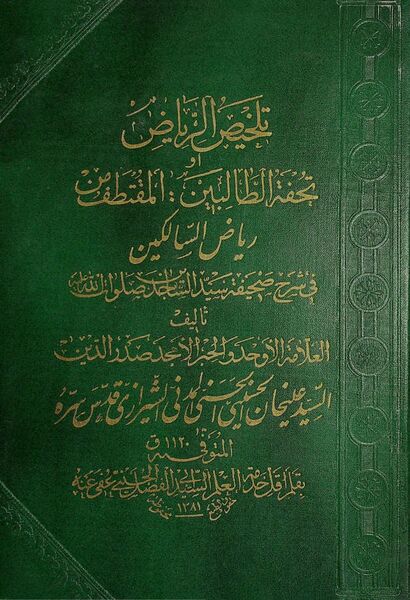 تلخيص الرياض
أو
تحفة الطالبين : المقتطف من
رياض السالكين
في شرح صحيفة سيد الساجدين صلوات الله عليه
تأليف
العلامة الأوحد والحبر الأمجد صدر الدين
السيد عليخان الحسيني الحسني المدني الشيرازي قدس سره
المتوفى ١١٢٠ ق
بقلم أقل خدمة العلم السيد أبو الفضل الحسيني عفي عنه
١٣٨١